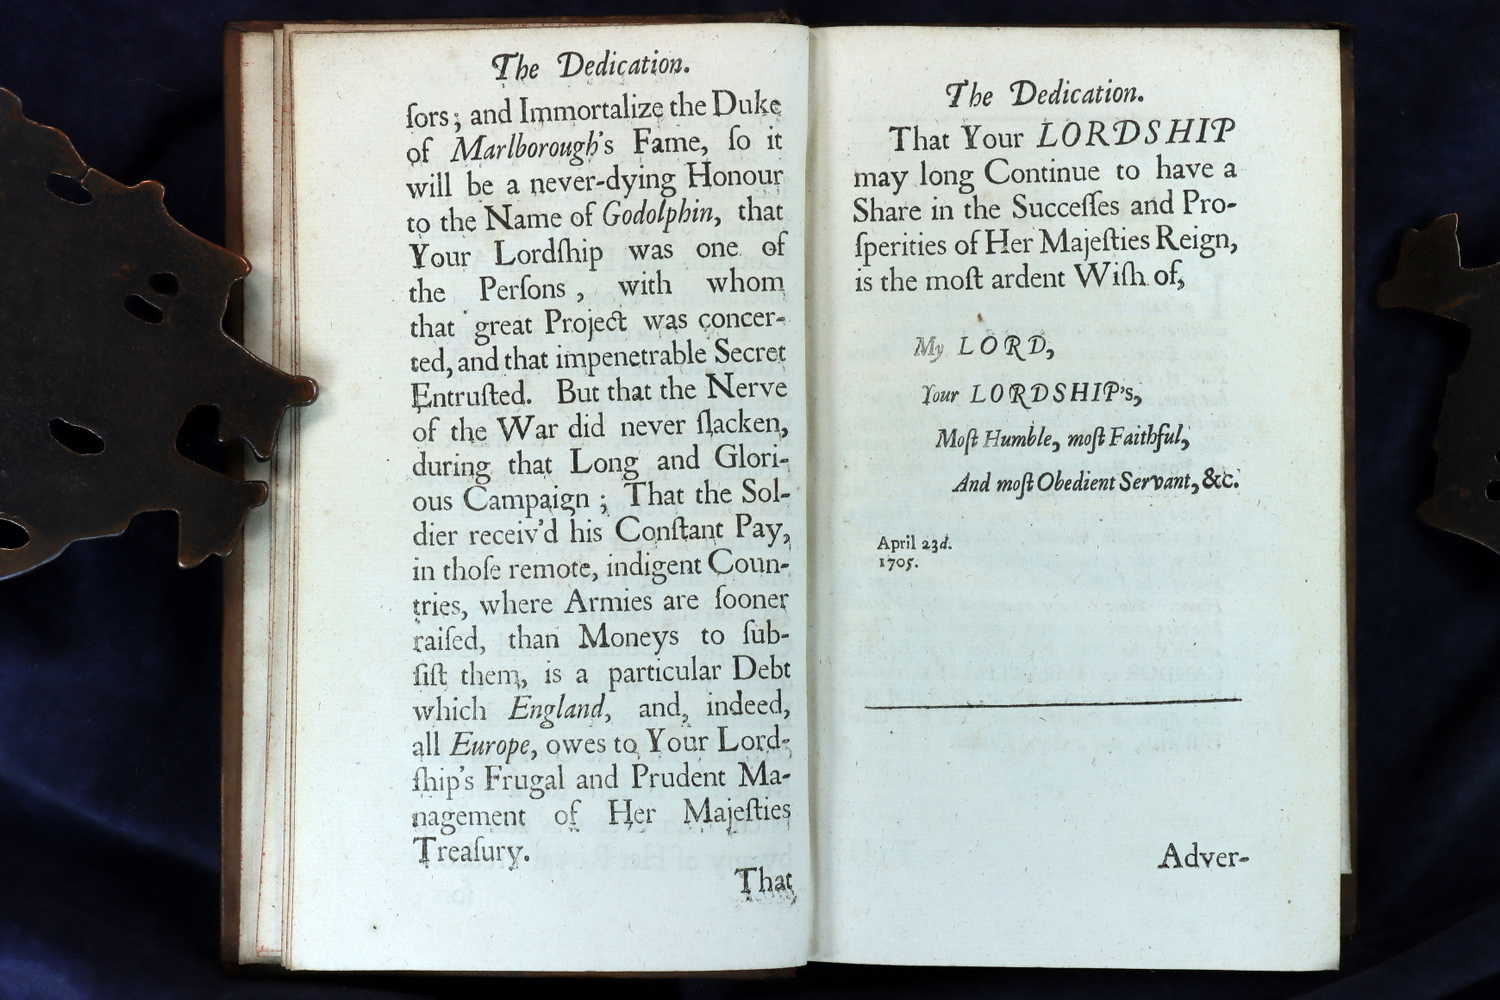 The Dedication.
ſors; and Immortalize the Duke
of Marlborough's Fame, ſo it
will be a never-dying Honour
to the Name of Godolphin, that
Your Lordſhip was one of
the Perſons, with whom
that great Project was concer-
ted, and that impenetrable Secret
Entruſted. But that the Nerve
of the War did never ſlacken,
during that Long and Glori-
ous Campaign; That the Sol-
dier receiv'd his Conſtant Pay,
in thoſe remote, indigent Coun-
tries, where Armies are ſooner
raiſed, than Moneys to ſub-
ſiſt them, is a particular Debt
which England, and, indeed,
all Europe, owes to Your Lord-
ſhip's Frugal and Prudent Ma-
nagement of Her Majeſties
Treaſury.
That
The Dedication.
That Your LORDSHIP
may long Continue to have a
Share in the Succeſſes and Pro-
ſperities of Her Majeſties Reign,
is the moſt ardent Wiſh of,
My LORD,
Your LORDSHIP's,
Moſt Humble, moſt Faithful,
And moſt Obedient Servant, &c.
April 23d.
1705.
Adver-